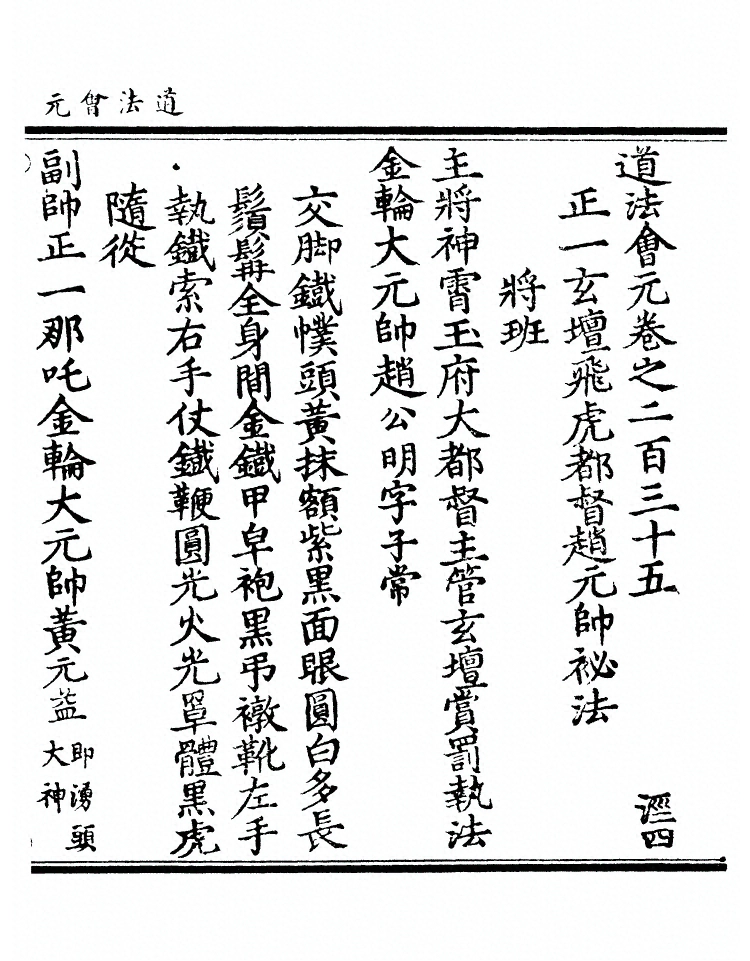 道法會元
道法會元卷之二百三十五 涇四
正一玄壇飛虎都督趙元帥祕法
將班
主將神霄玉府大都督主管玄壇賞罰執法
金輪大元帥趙公明字子常
交脚鐵幞頭黃抹額紫黑面眼圓白多長
鬚髯全身間金鐵甲皁袍黑吊襪靴左手
執鐵索右手仗鐵鞭圓光火光罩體黑虎
隨從
副帥正一那吒金輪大元帥黃元益 即湧頭
大神